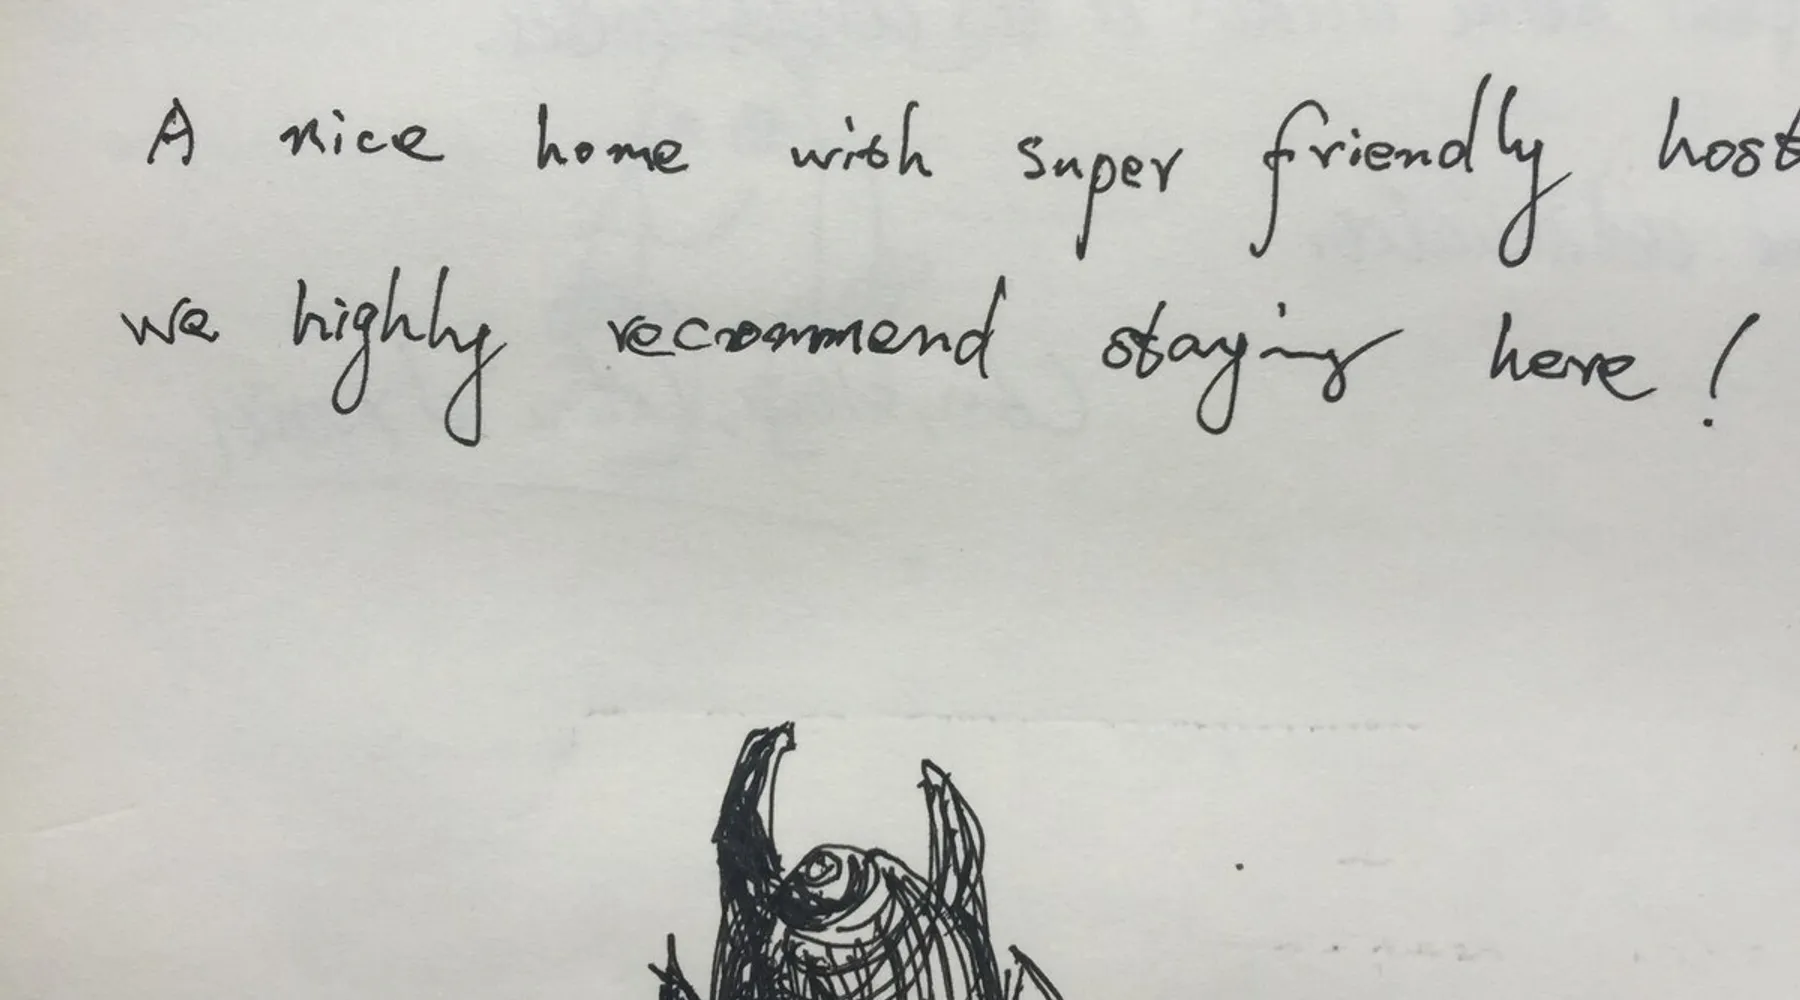 A nice home with super friendly host
we highly recommend staying here!